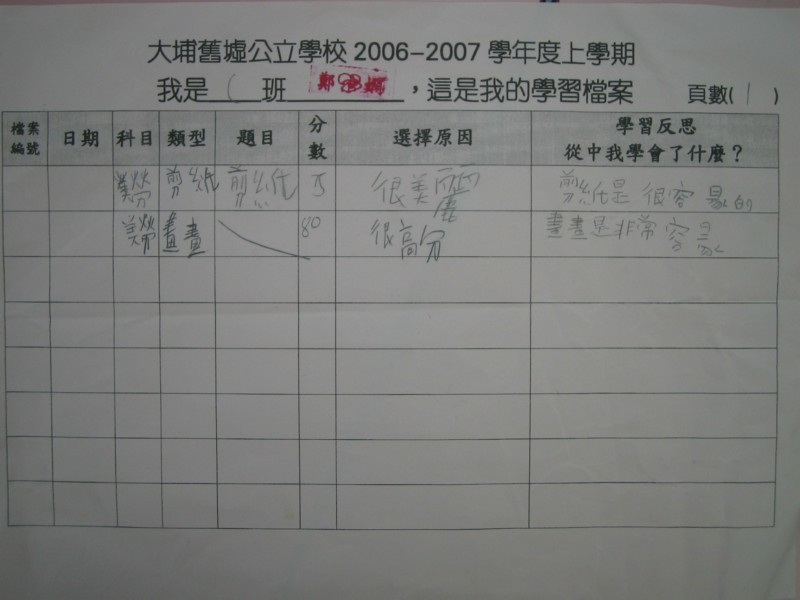 大埔舊墟公立學校 2006-2007 學年度上學期
我是 班 鄭，這是我的學習檔案 頁數(1)
檔案編號 日期 科目 類型 題目 分數 選擇原因 學習反思 從中我學會了什麼？
美勞 剪紙 剪紙 很美麗 剪紙是很容易的
美勞 畫畫 80 很高分 畫畫是非常容易